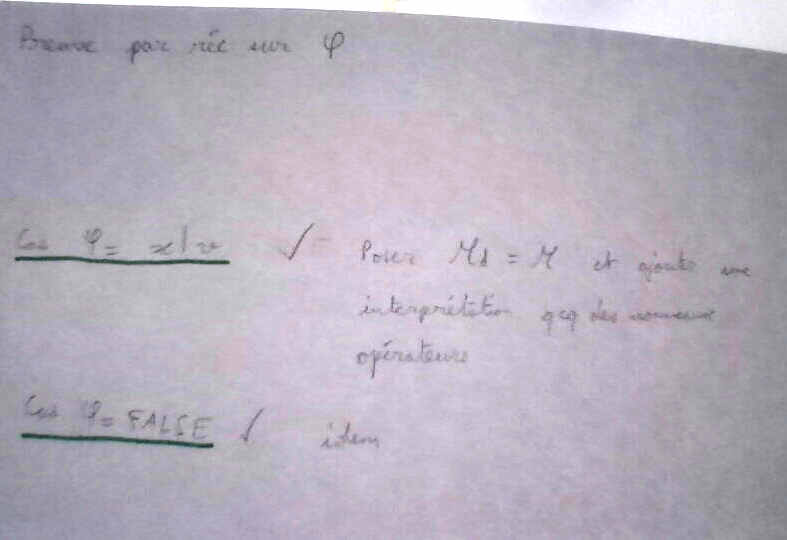 Preuve par réc sur φ
Cas φ = x|v ✓ Poser M1 = M et ajouter une
interprétation qcq des nouveaux
opérateurs
Cas φ = FALSE ✓ idem